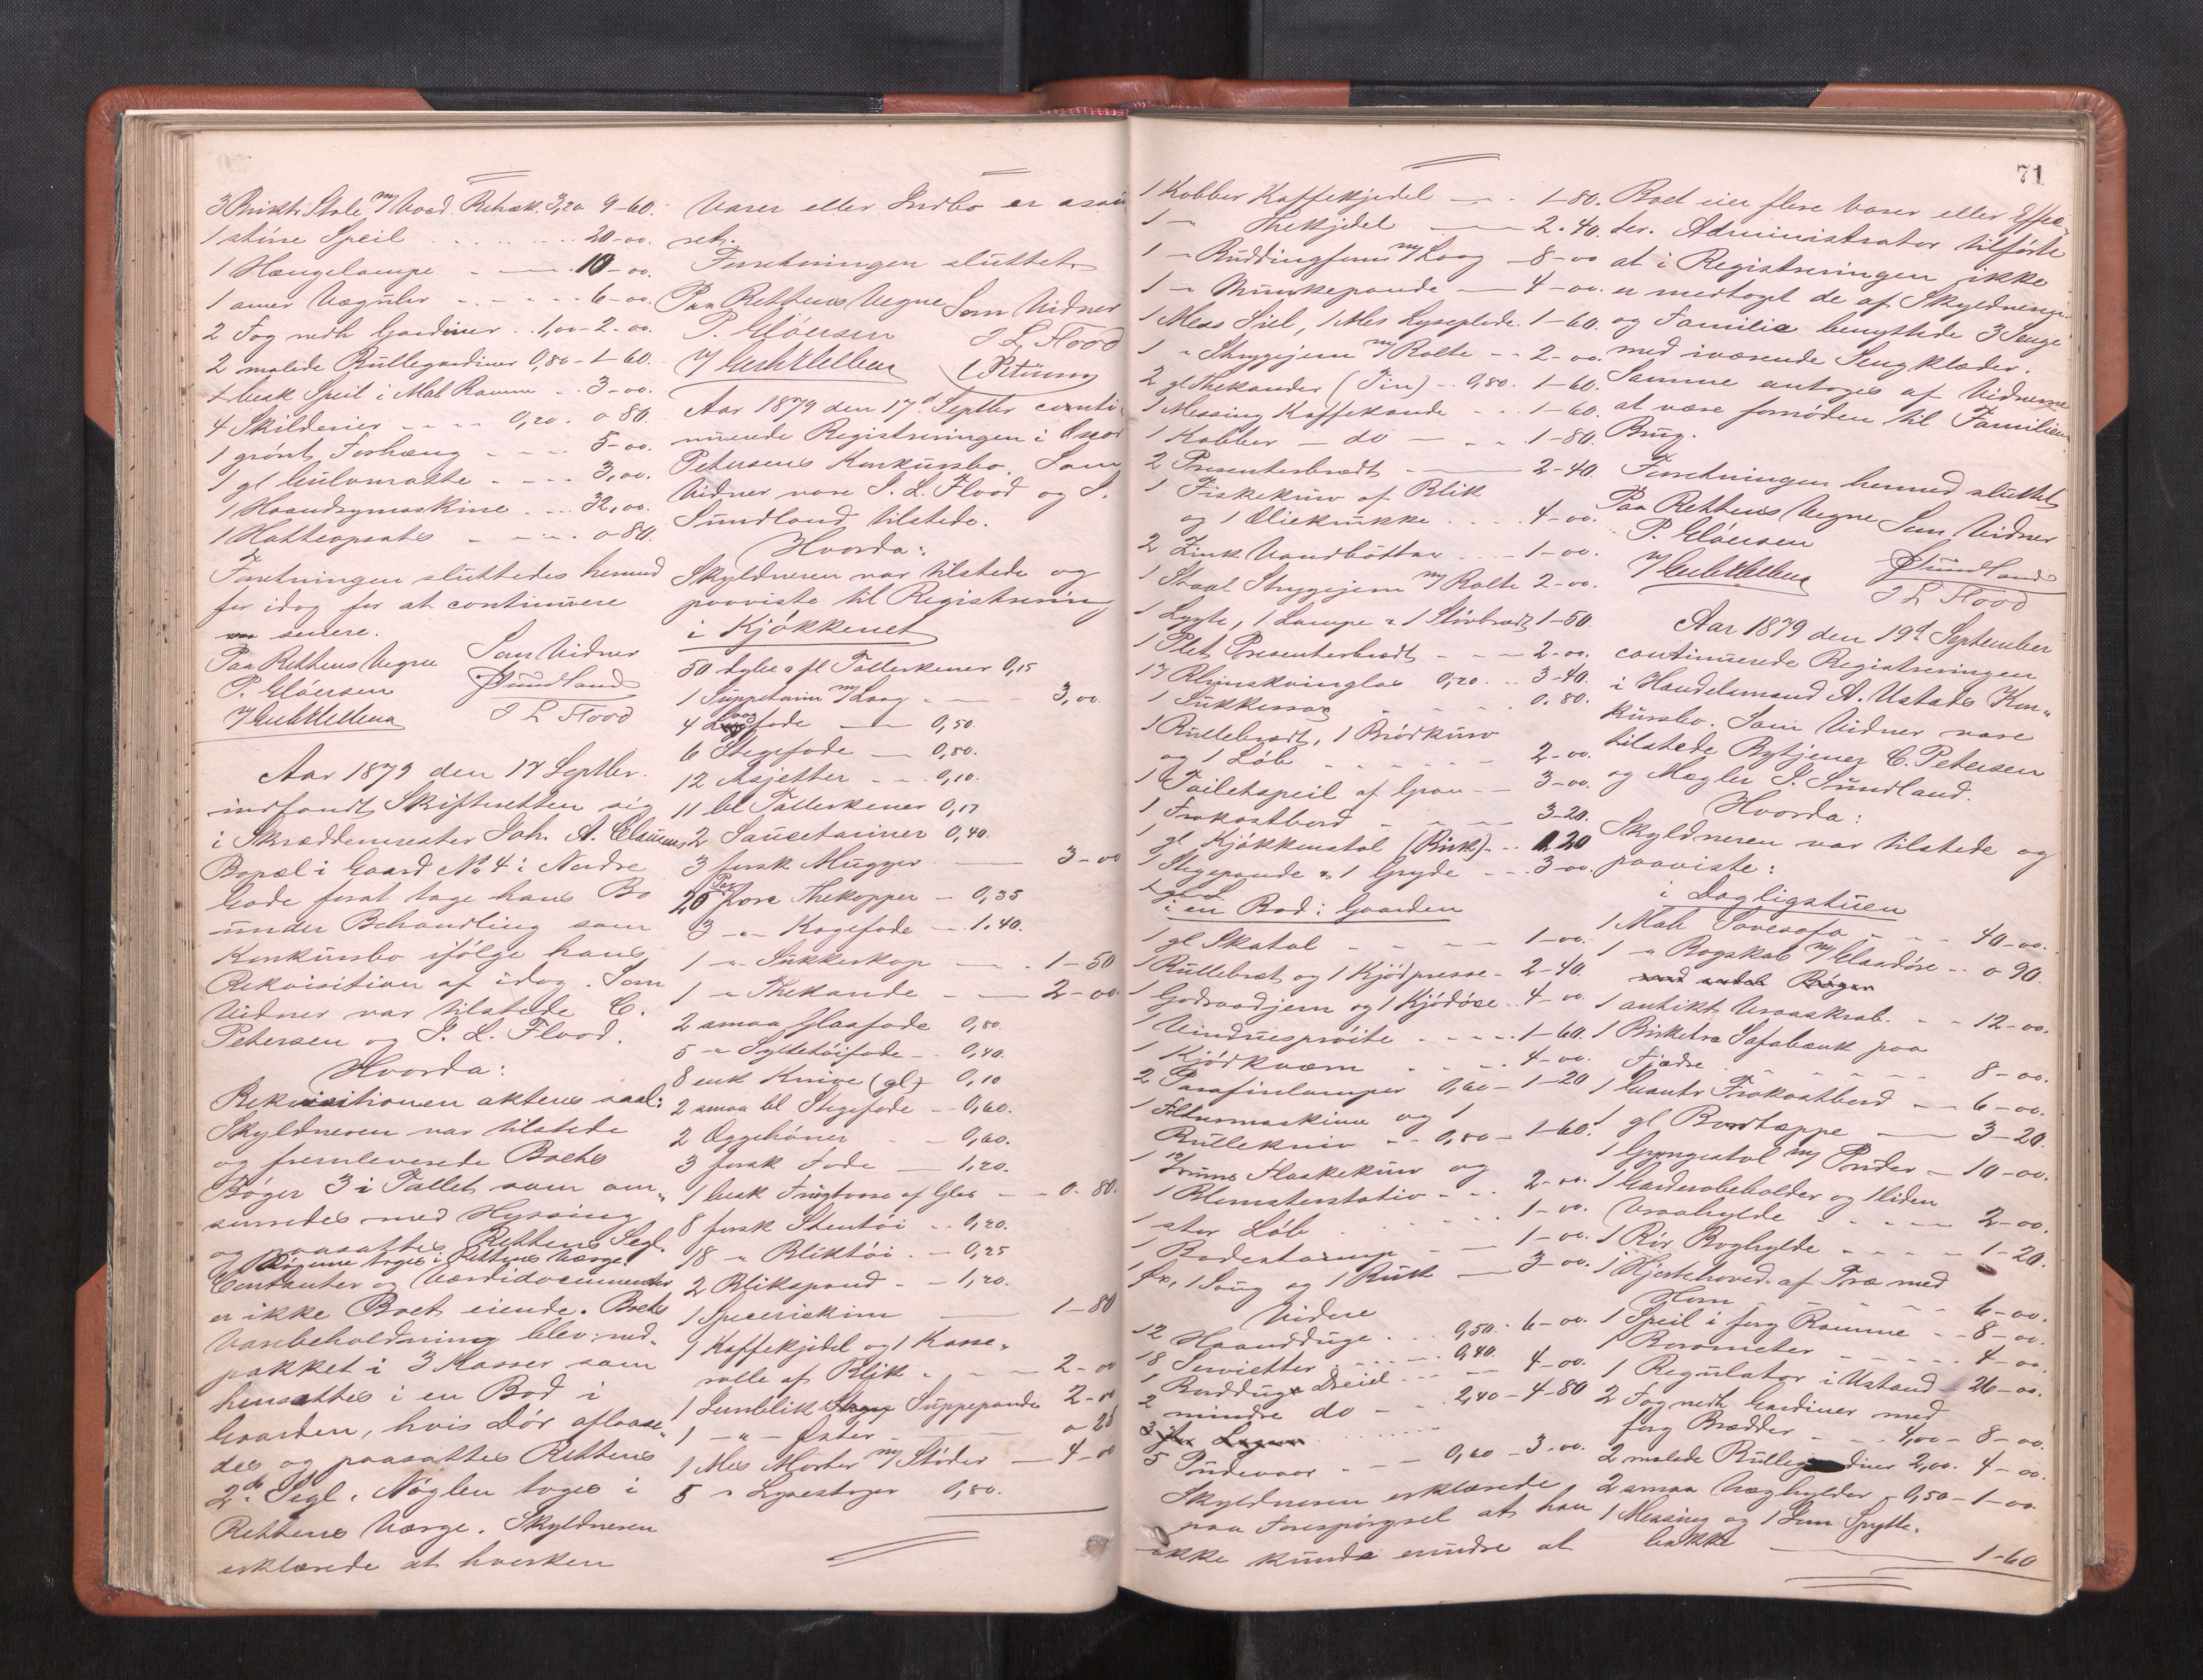 3 Birketr Stole m/ Voxd. Betræk. 3,20 9-60.
1 större Speil 20-00.
1 Hængelampe 10-00.
1 amer Vægúhr 6-00.
2 Fag nedh Gardiner 1,00-2-00.
2 malede Rúllegardiner 0,80-1-60.
1 besk Speil i Mah Ramme 3-00.
4 Skilderier 0,20. 0 80.
1 grönt Forhæng 5-00.
1 gl Gúlvmatte 3,00.
1 Haandsymaskine 32,00.
1 Hatteopsats 0 80.
Forretningen slúttedes hermed
for idag for at continúere
senere.
Paa Rettens Vegne Som Vidner
P. Glöersen JSúndland
J L Flood
Aar 1879 den 17 Septbr.
indfandt Skifteretten sig
i Skræddermester Joh. A. Claúsens
Bopæl i Gaard No 4 i Nordre
Gade forat tage hans Bo
únder Behandling som
Konkúrsbo ifölge hans
Rekvisition af idag. Som
Vidner var tilstede C.
Petersen og J. L. Flood.
Hvorda:
Rekvisitionen aktens saal:
Skyldneren var tilstede
og fremleverede Boets
Böger 3 i Tallet som om-
snoredes med Hyssing
og paasattes Rettens Segl.
Bögerne toges i Rettens Værge.
Contanter og Værdidocúmenter
er ikke Boet eiende. Boets
Varebeholdning blev ned-
pakket i 3 Kasser som
hensattes i en Bod i
Gaarden, hvis Dör aflaase-
des og paasattes Rettens
2de Segl. Nöglen toges i
Rettens Værge. Skyldneren
erklærede at hverken
Varer eller Indbo er assú-
rert.
Forretningen slúttet
Paa Rettens Vegne Som Vidner
P. Glöersen J L Flood
C Petersen
Aar 1879 den 17d Septbr conti-
núerede Registreringen i Oscar
Petersens Konkúrsbo. Som
Vidner vare J. L. Flood og J.
Súndland tilstede.
Hvorda:
Skyldneren var tilstede og
paaviste til Registrering
i Kjökkenet
50 dybe & fl Tallerkener 0,15
1 Súppeterin m/ Laag 3,00.
4 Laagfade 0,50.
6 Stegefade 0,80.
12 Asjetter 0,10.
11 bl Tallerkener 0,17
2 Saúceteriner 0,40.
3 forsk Múgger 3-00
20 Par porc Thekopper 0,35
3 -"- Kagefade 1.40.
1 -"- Súkkerkop 1-50
1 -"- Thekande 2-00.
2 smaa Glasfade 0,80.
5 -"- Syltetöifade 0,40.
8 enk Knive (gl) 0,10
2 smaa bl Stegefade 0,60.
2 Æggehöner 0,60.
3 forsk Fade 1,20.
1 besk Frúgtvase af Glas 0-80.
8 forsk Stentöi 0,20.
18 -"- Bliktöi 0,25
2 Blikspand 1,20.
1 Speceriskrin 1-80
1 Kaffekjedel og 1 Kasse-
rolle af Blik 2-00
1 Jernblik Súppepande 2-00
1 -"- Öster 0 25
1 Mes Morter m/ Stöder 4-00
5 -"- Lysestager 0,80.
71
1 Kobber Kaffekjedel 1-80.
1 -"- Thekjedel 2-40.
1 -"- Búddingform m/ Laag 8-00
1 -"- Múnkepande 4-00.
1 Mess Siel, 1 Mes Lyseplade 1-60.
1 -"- Strygejern m/ Bolte 2-00.
2 gl Thekander (Tin) 0,80. 1-60.
1 Messing Kaffekande 1-60.
1 Kobber - do - 1-80.
2 Presenterbrædt 2-40.
1 Fiskekúrv af Blik
og 1 Oliekrúkke 4-00.
2 Zink Vandbötter 1-00.
1 Staal Strygejern m/ Bolte 2-00.
1 Lygte, 1 Lampe & 1 Stövbræt 1-50.
1 Plet Presenterbrædt 2-00.
17 Rhinskvinglas 0,20 3-40.
1 Súkkersag 0.80.
1 Rúllebrædt, 1 Brödkúrv
og 1 Löb 2-00.
1 Toiletspeil af Gran 3-00.
1 Frokostbord 3-20.
1 gl Kjökkenstol (Birk) 1.20
1 Stegepande & 1 Gryde 3-00.
i en Bod i Gaarden
1 gl Skatol 1-00.
1 Rúllebræt og 1 Kjödpresse 2-40.
1 Godraadjern og 1 Kjödöxe 4-00.
1 Vindúespröite 1-60.
1 Kjödkværn 4-00.
2 Parafinlamper 0,60-1-20
1 Filtermaskine og 1
Rúllekniv 0,80-1-60.
1 12/ Rúms Flaskekúrv og
1 Blomsterstativ 2-00.
1 stor Löb 1-00.
1 Badestamp 1-00.
1 Öxe, 1 Saug og 1 Búk 3-00.
Videre
12 Haanddúge 0,50. 6-00.
18 Servietter 0,40.
1 Borddúg Dreiel 4-00.
2 mindre do 2,40-4-80
5 Púdevaar 0,60-3-00.
Skyldneren erklærede
paa Forespörgsel at han
ikke kúnde erindre at
Boet eier flere Varer eller Effec-
ter. Administrator tilförte
at i Registreringen ikke
er medtaget de af Skyldneren
og Familie benyttede 3 Senge
med iværende Sengklæder.
Samme antoges af Vidnerne
at være fornöden til Familiens
Brúg.
Forretningen hermed slúttet
Paa Rettens Vegne Som Vidner
P. Glöersen JSúndland
J L Flood
Aar 1879 den 19d September
continúerede Registreringen
i Handelsmand A. Ustads Kon-
kúrsbo. Som Vidner vare
tilstede Bytjener C. Petersen
og Mægler J. Súndland.
Hvorda:
Skyldneren var tilstede og
paaviste:
i Dagligstúen
1 Mah Sovesofa 40-00.
1 -"- Bogskab m/ Glasdöre 0 90.
1 antikt Vraaskab 12-00.
1 Birketræ Sofabænk paa
Fjædre 8-00.
1 Frokostbord 6-00.
1 gl Bordtæppe 3-20.
1 Gyngestol m/ Púder 10-00.
1 Garderobeholder og 1 liden
Vraahylde 2-00.
1 Rör Boghylde 1-20.
1 Hjortehoved af Træ med
Horn 6-00.
1 Speil i forg Ramme 8-00.
1 Barometer 4-00.
1 Regúlator i Ustand 26-00.
2 Fag nedh Gardiner med
forg Brædder 4,00-8-00.
2 malede Rúllegardiner 2,00. 4-00.
2 smaa Væghylder 0,50-1-00.
1 Messing og 1 Jern Spytte-
bakke 1-60